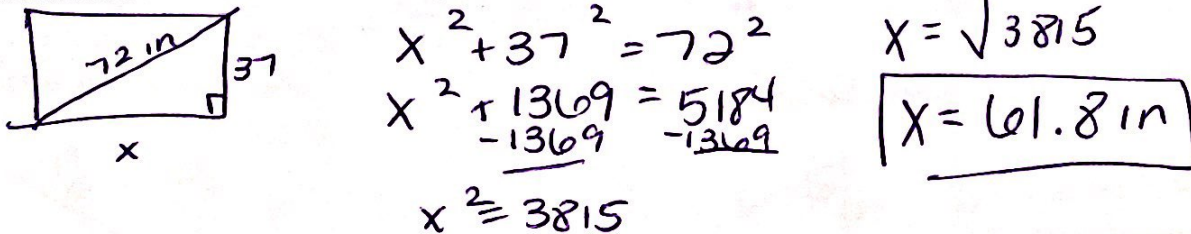 72 in
37
x
x² + 37² = 72²
x² + 1369 = 5184
-1369 -1369
x² = 3815
x = √3815
x = 61.8 in